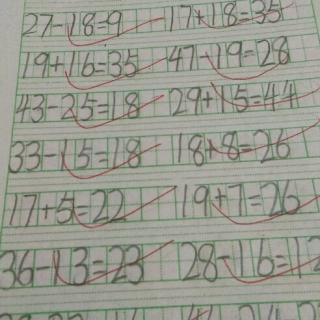 27-18=9 17+18=35
19+16=35 47-19=28
43-25=18 29+15=44
33-15=18 18+8=26
17+5=22 19+7=26
36-13=23 28-16=12